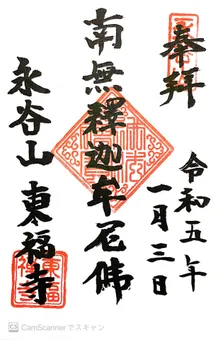 奉拝
令和五年
一月三日
南無釋迦牟尼佛
永谷山 東福寺
東福寺
CamScannerでスキャン